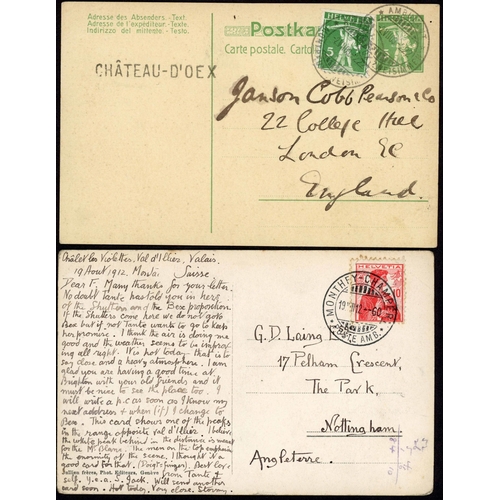 Adresse des Absenders.-Text.
Adresse de l'expéditeur.-Texte.
Indirizzo del mittente.-Testo.
Postka
Carte postale. Carto
HELVETIA
5
CHÂTEAU-D'OEX
Janson Cobb Pearson & Co
22 College Hill
London EC
England.
Châlet les Violettes, Val d'Illiez, Valais,
19 Aout 1912. Monday Suisse
Dear F. Many thanks for your letter.
No doubt Tante has told you in hers
of the Shuttons and the Bex proposition
if the Shuttens come here we do not go to
Bex but if not Tante wants to go to keep
her promise. I think the air is doing me
good and the weather seems to be improv
ing all right. It is hot today, that is to
say close and a heavy atmosphere. I am
glad you are having a good time at
Brighton with your old friends and it
must be nice to see the place too. I
will write a p.c as soon as I know my
next address & when (if) I change to
Bex. This card shows one of the peaks
in the range opposite val d'Illiez. I believe
the white peak behind in the distance is meant
for the Mt Blanc. The men on the top emphasise
the enormity of the scene. I thought it a
good card for that. (Doigt = finger). Best love
Jullien frères, Phot. Editeurs, Genève
from Tante & self. Y.e.a.s. Jack. Will send another
card soon. Hot today, very close. Stormy.
HELVETIA
10
MONTHEY-CHAMPÉRY
19 VIII 12 - 6
POSTE AMB.
G.D. Laing
17 Pelham Crescent,
The Park,
Nottingham.
Angleterre.